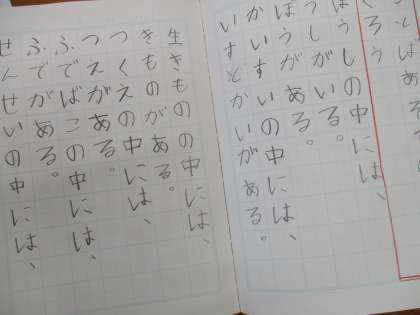 ぼうしの中には、
うしがいる。
がある。
かいすいの中には、
いすとかいがある。
生きものの中には、
きものがある。
つくえの中には、
つえがある。
ふでばこの中には、
ふでがある。
せんせいの中には、